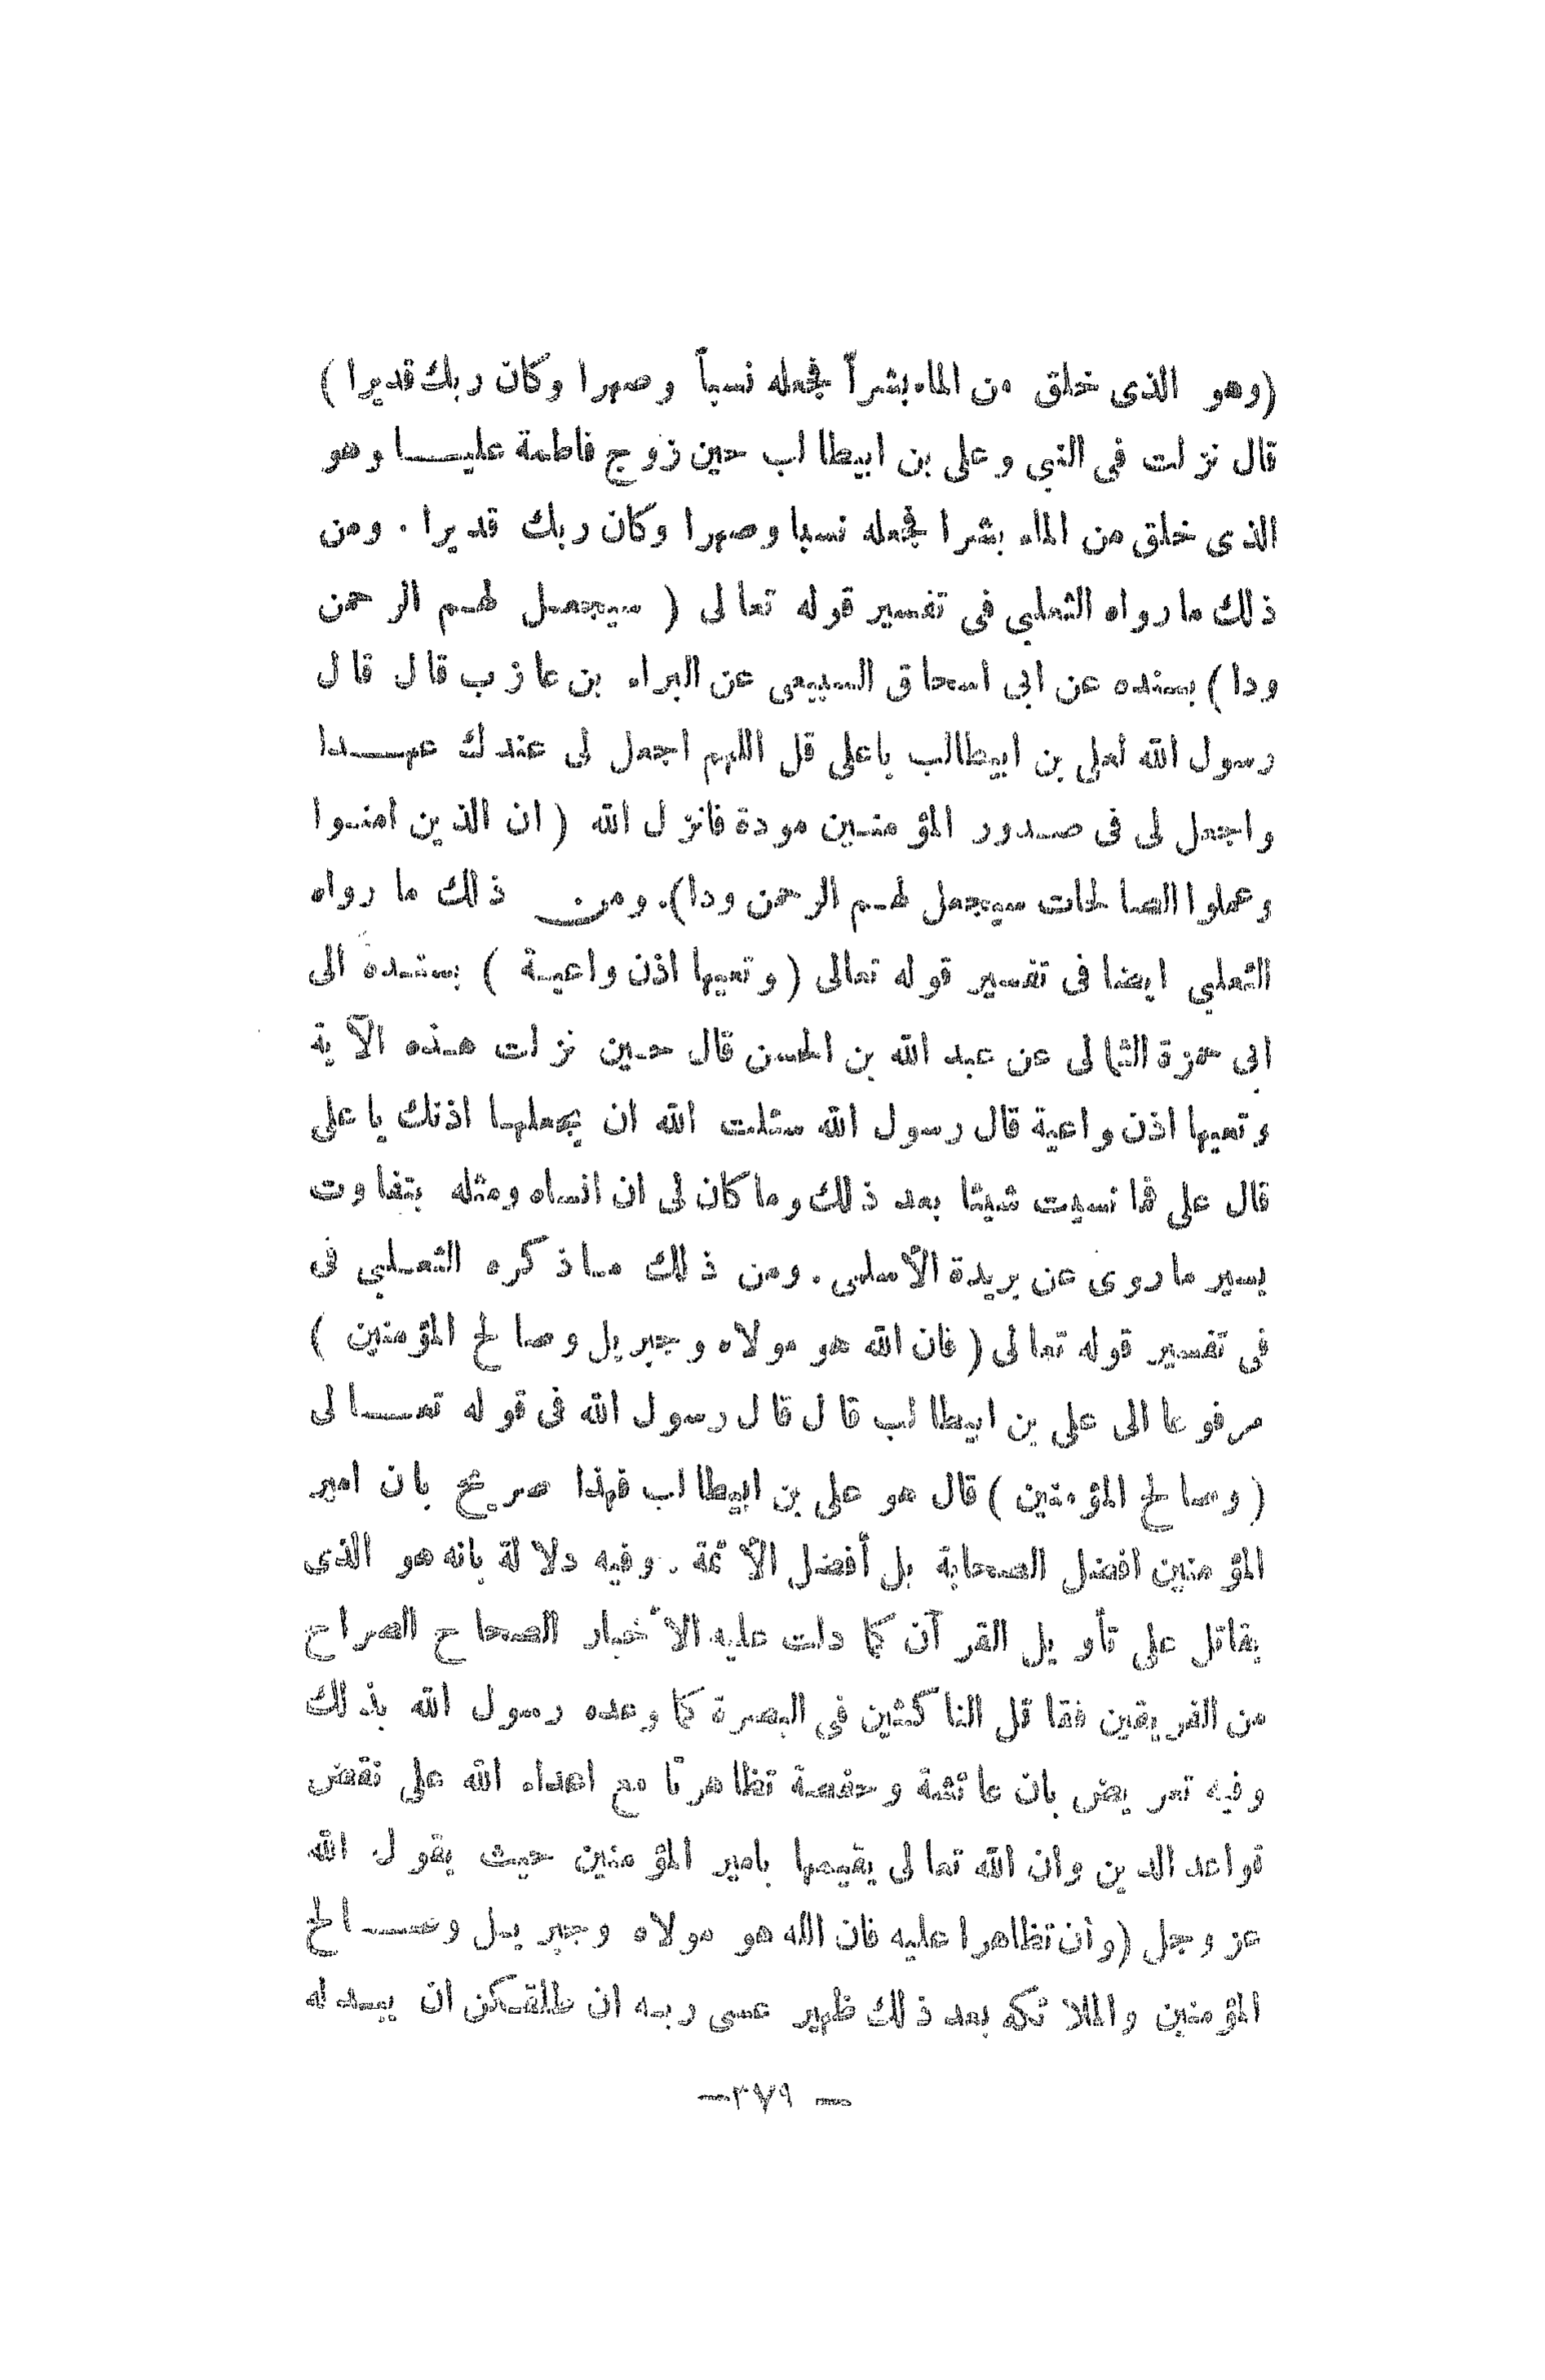 (وهو الذى خلق من الماء بشراً فجعله نسباً وصهرا وكان ربك قديرا )
قال نزلت فى النبي وعلى بن ابيطالب حين زوج فاطمة عليـــا وهو
الذى خلق من الماء بشرا فجعله نسبا وصهرا وكان ربك قديرا . ومن
ذلك مارواه الثعلبي فى تفسير قوله تعالى ( سيجعـل لهـم الرحمن
ودا ) بسنده عن ابى اسحاق السبيعى عن البراء بن عازب قال قال
رسول الله لعلى بن ابيطالب ياعلى قل اللهم اجعل لى عندك عهـــدا
واجعل لى فى صـدور المؤمنـين مودة فانزل الله ( ان الذين امنـوا
وعملوا الصالحات سيجعل لهـم الرحمن ودا). ومن ذلك ما رواه
الثعلبي ايضا فى تفسير قوله تعالى ( وتعيها اذن واعيـة ) بسنـده الى
ابى حمزة الثمالى عن عبد الله بن الحسن قال حـين نزلت هـذه الآية
وتعيها اذن واعية قال رسول الله سئلت الله ان يجعلهـا اذنك ياعلى
قال على فما نسيت شيئا بعد ذلك وما كان لى ان انساه ومثله بتفاوت
يسير ماروى عن بريدة الأسلمى . ومن ذلك مـاذكره الثعـلبي فى
فى تفسير قوله تعالى ( فان الله هو مولاه وجبريل وصالح المؤمنين )
مرفوعا الى على بن ابيطالب قال قال رسول الله فى قوله تعـــالى
( وصالح المؤمنين ) قال هو على بن ابيطالب فهذا صريح بان امير
المؤمنين افضل الصحابة بل أفضل الأئمة . وفيه دلالة بانه هو الذى
يقاتل على تأويل القرآن كما دلت عليه الأخبار الصحاح الصراح
من الفريقين فقاتل الناكثين فى البصرة كما وعده رسول الله بذلك
وفيه تعريض بان عائشة وحفصة تظاهرتا مع اعداء الله على نقض
قواعد الدين وان الله تعالى يقيمها بامير المؤمنين حيث يقول الله
عز وجل (وأن تظاهرا عليه فان الله هو مولاه وجبريـل وصـــالح
المؤمنين والملائكه بعد ذلك ظهير عسى ربـه ان طلقـكن ان يبـدله
— ٣٧٩—